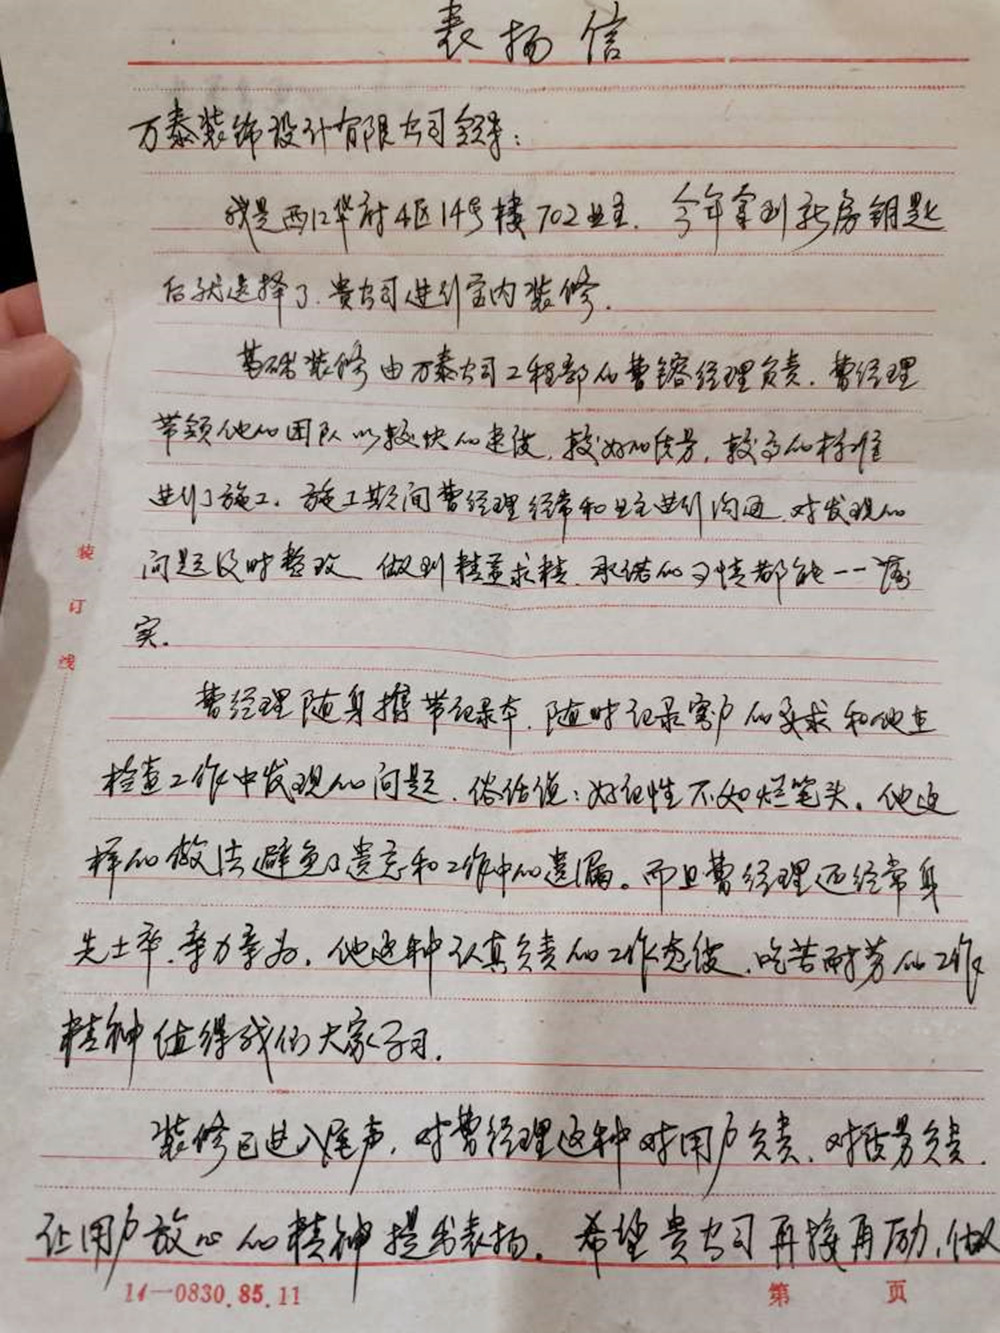 表扬信
万泰装饰设计有限公司领导：
我是西江华府4区14号楼702业主．今年拿到新房钥匙
后就选择了．贵公司进行室内装修．
基础装修由万泰公司工程部的曹镕经理负责．曹经理
带领他的团队以较快的速度，较好的质量，较高的标准
进行了施工。施工期间曹经理经常和业主进行沟通．对发现的
问题及时整改．做到精益求精．承诺的事情都能一一落
实．
曹经理随身携带记录本．随时记录客户的要求和他在
检查工作中发现的问题．俗话说：好记性不如烂笔头。他这
样的做法避免了遗忘和工作中的遗漏。而且曹经理还经常身
先士卒．亲力亲为．他这种认真负责的工作态度．吃苦耐劳的工作
精神值得我们大家学习．
装修已进入尾声．对曹经理这种对用户负责．对质量负责．
让用户放心的精神提出表扬．希望贵公司再接再励．做
装订线
14—0830.85.11
第 页